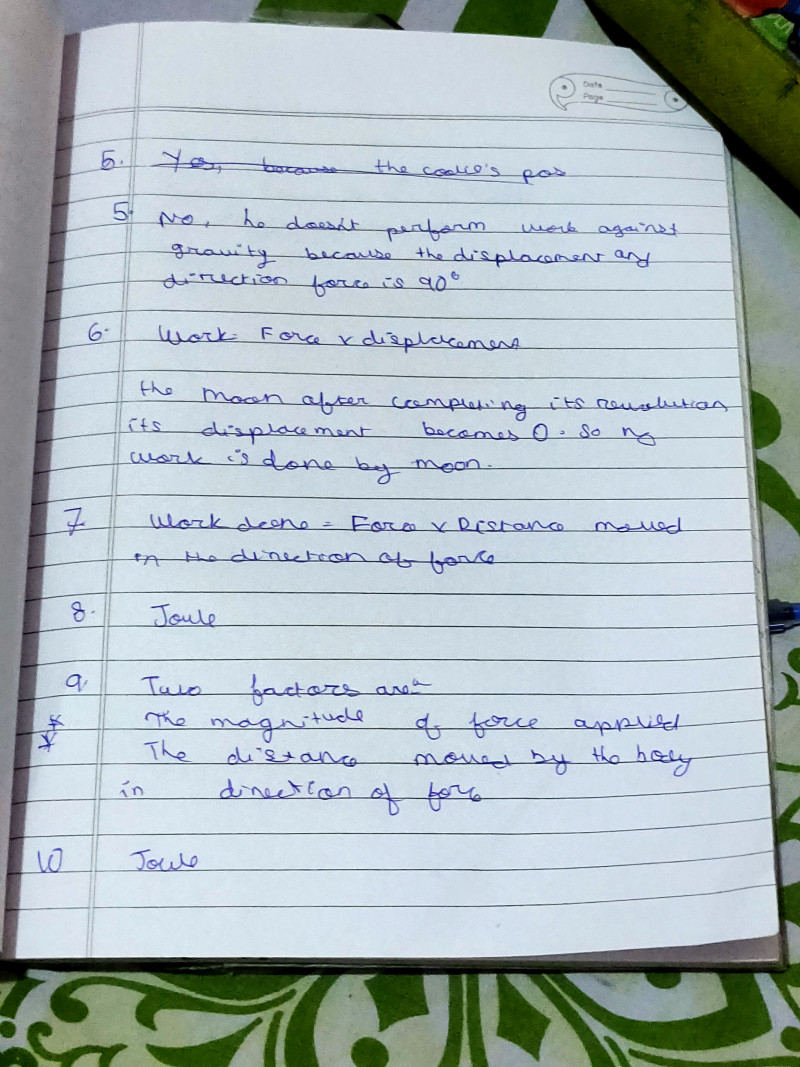 Date
Page
5. Yes, because the coolie's pos
5. No, he doesn't perform work against
gravity because the displacement any
direction force is 90°
6. Work = Force x displacement
the moon after completing its revolution
its displacement becomes 0. So no
work is done by moon.
7 Work done = Force x Distance moved
in the direction of force
8. Joule
9. Two factors are -
* The magnitude of force applied
* The distance moved by the body
in direction of force
10 Joule